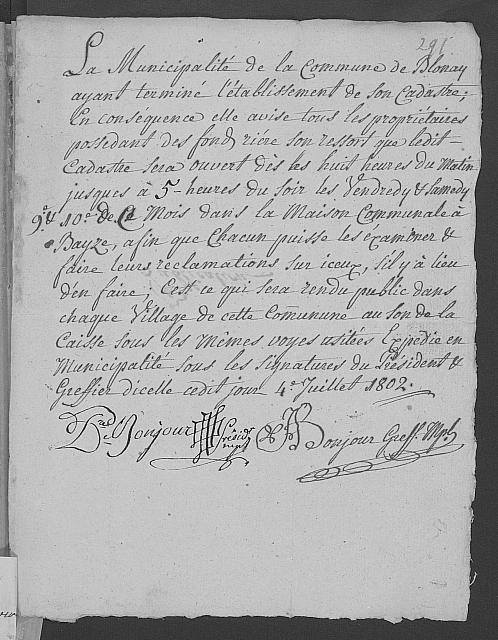 291
La Municipalité de la Commune de Blonay
ayant terminé l'établissement de son Cadastre;
En consequence elle avise tous les proprietaires
possedant des fond riére son ressort que ledit-
Cadastre sera ouvert dès les huit heures du Matin
jusques à 5- heures du Soir les Vendredy & Samedy
9e & 10e de Ce Mois dans la Maison Communale à
Bayze, afin que Chacun puisse les examiner &
faire leurs reclamations sur iceux, s'il y à lieu
d'en faire; C'est ce qui sera rendu public dans
chaque Village de cette Comunune au son de la
Caisse sous les Mêmes voyes usitées Expédié en
Municipalité sous les signatures du Président &
Greffier d'icelle cedit jour 4e Juillet 1802.
Bonjour Présidt Mpl
Bonjour Greff. Mpl